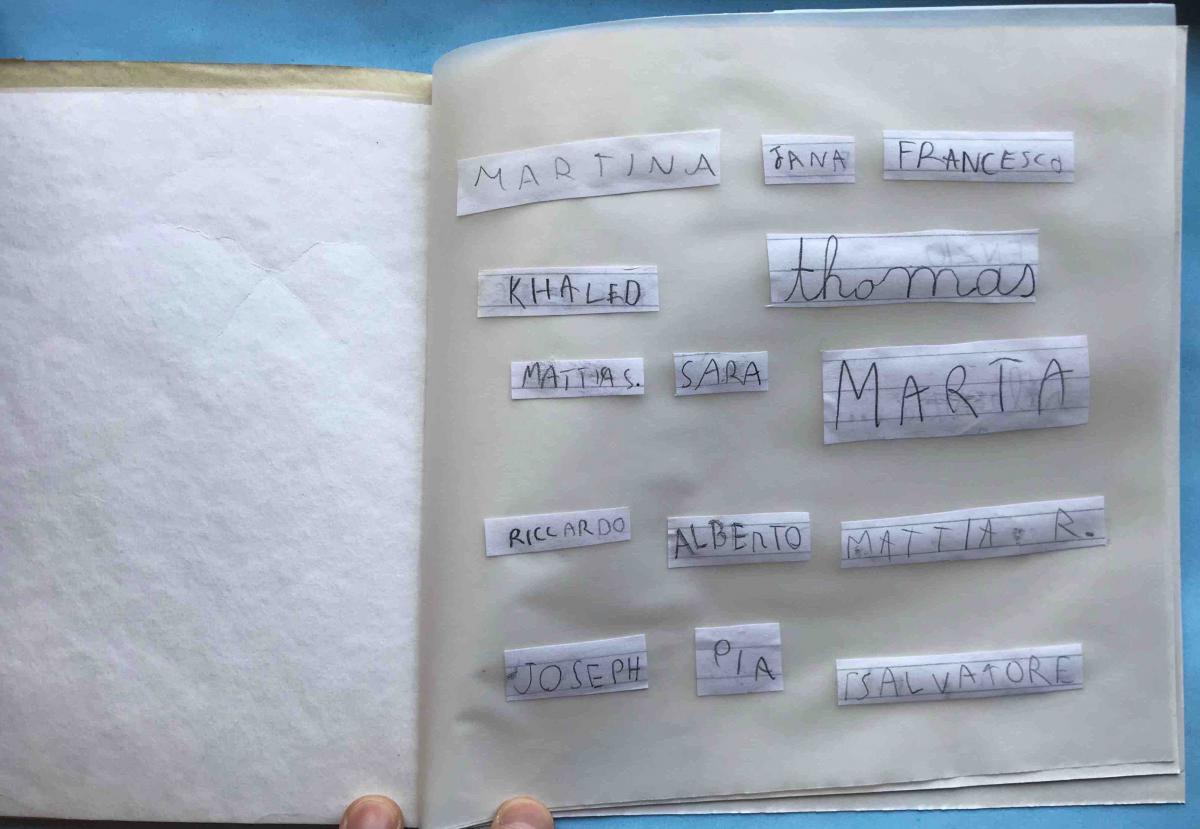 MARTINA JANA FRANCESCO
KHALED thomas
MATTIA S. SARA MARTA
RICCARDO ALBERTO MATTIA R.
JOSEPH PIA SALVATORE